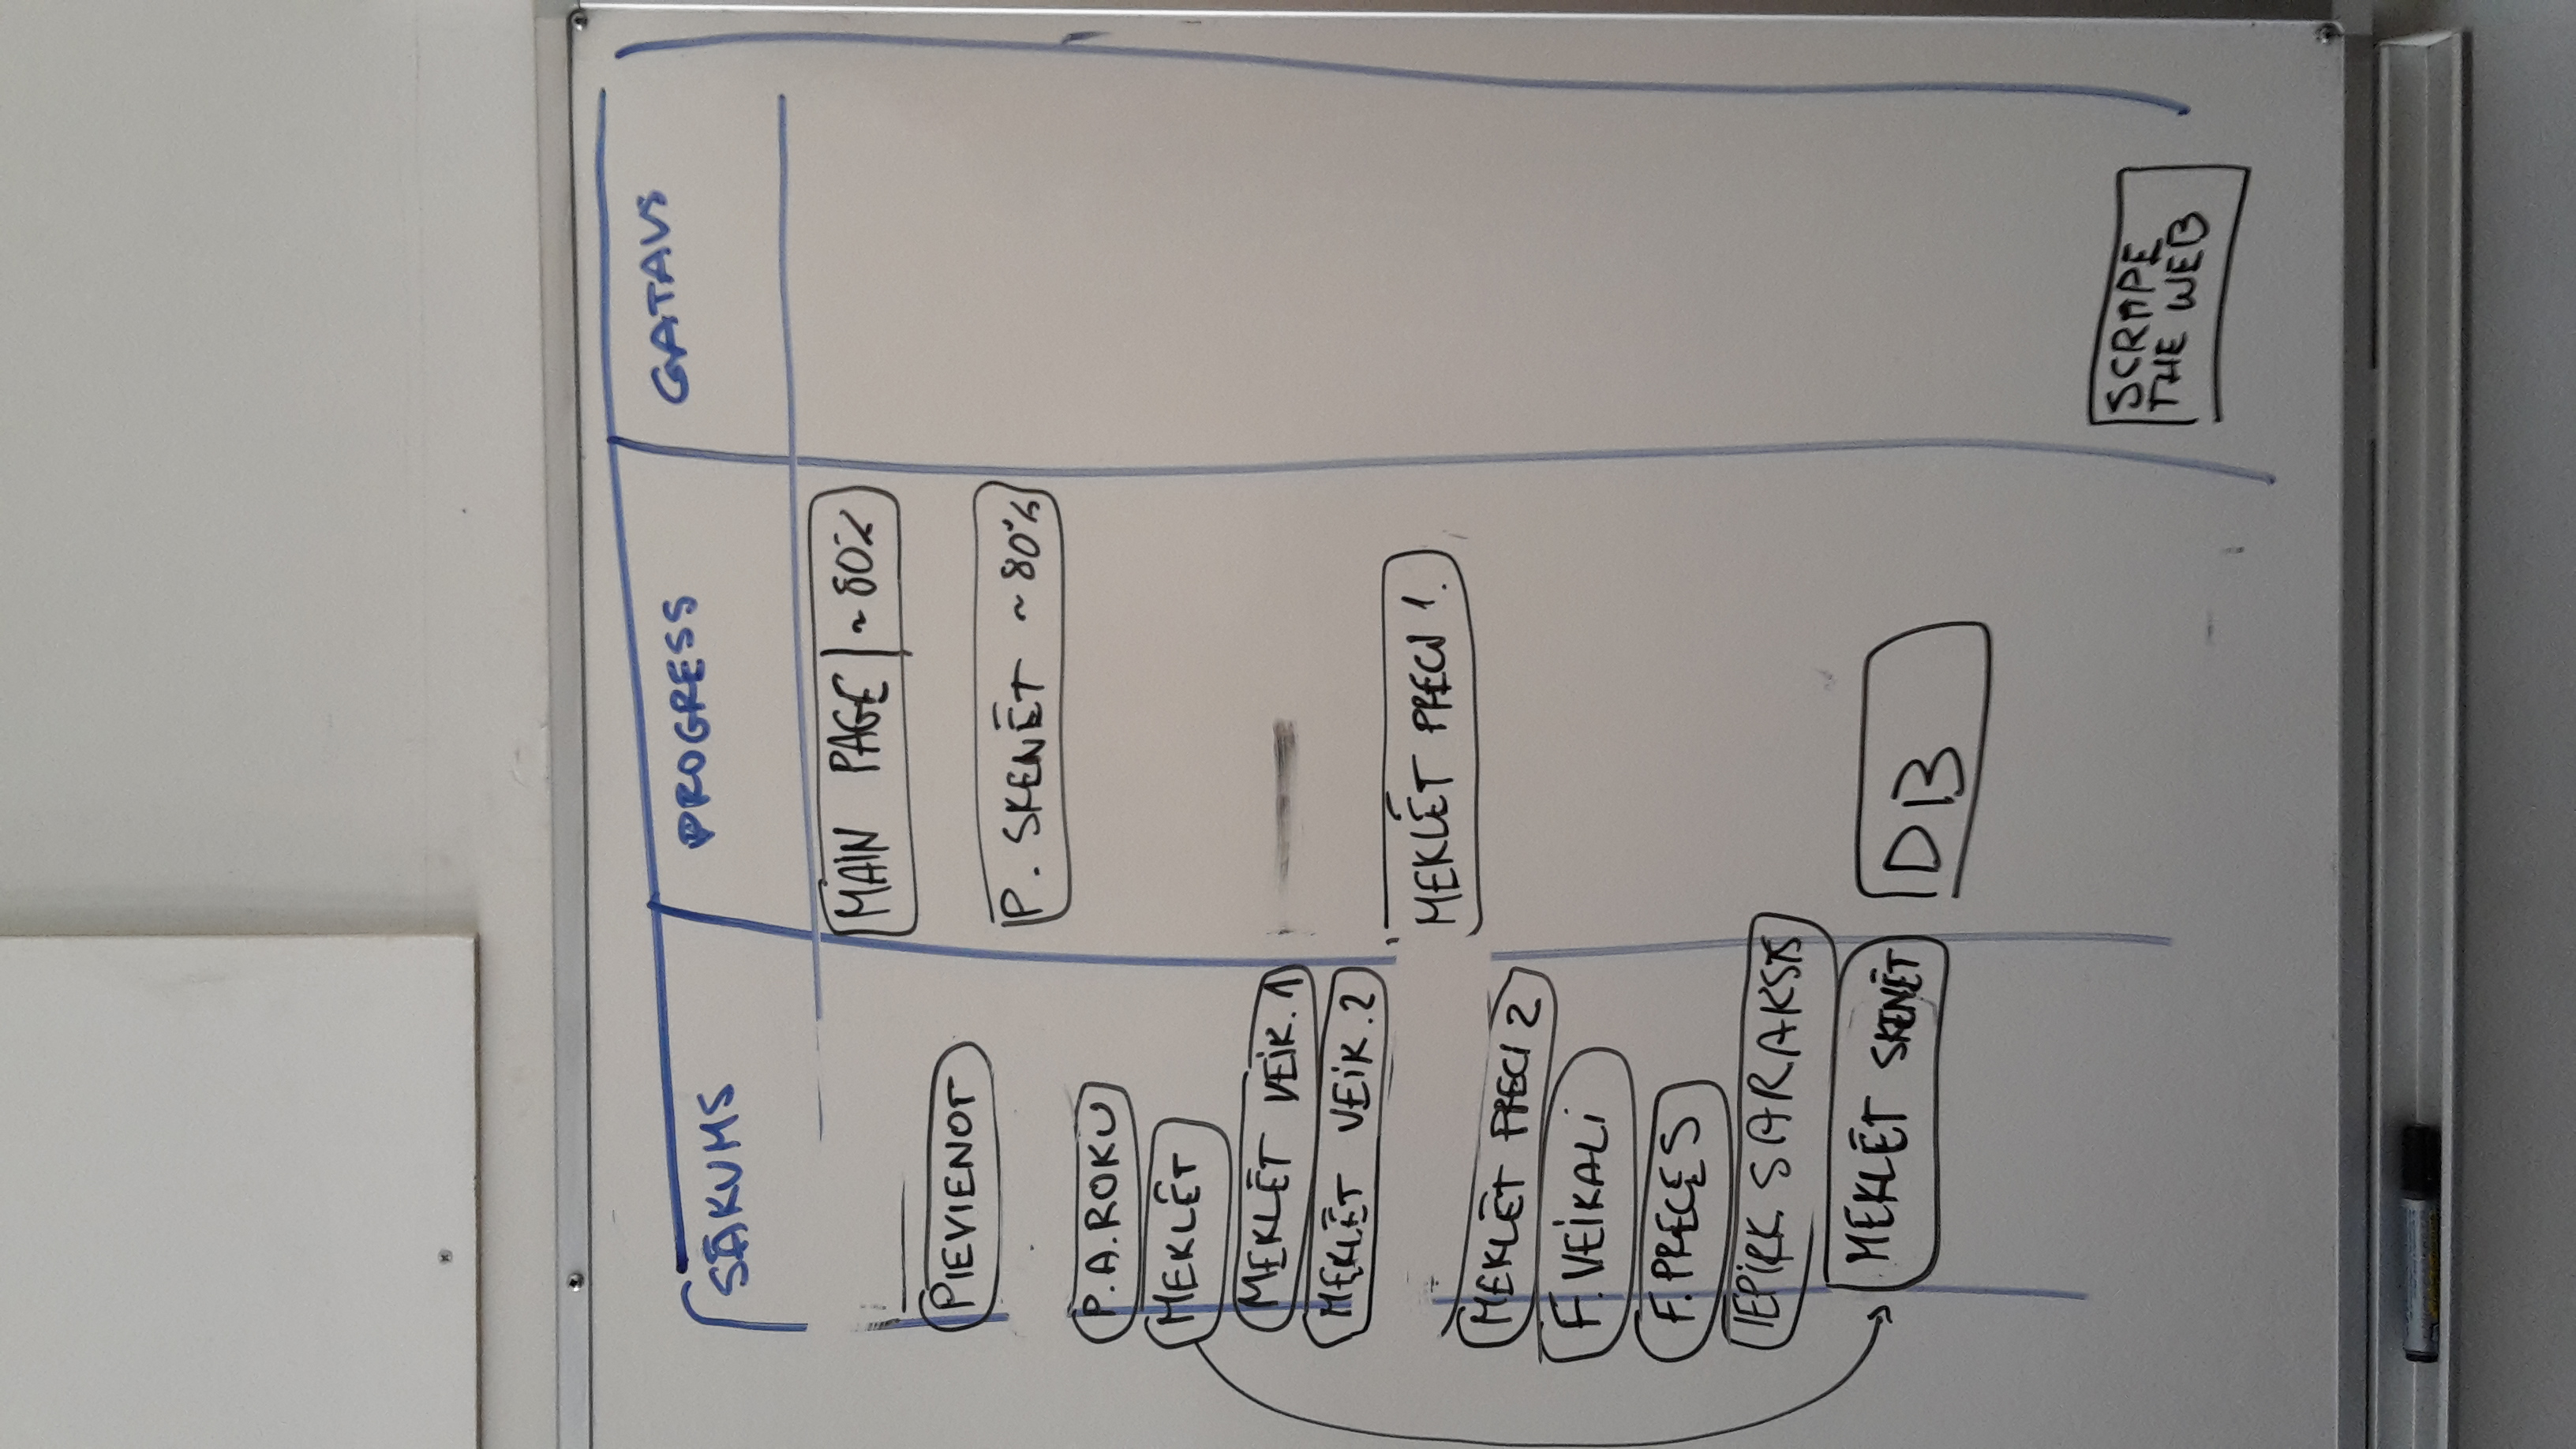 SĀKUMS
PROGRESS
GATAVS
MAIN PAGE | ~80%
PIEVIENOT
P. SKENĒT ~80%
P.A.ROKU
MEKLĒT
MEKLĒT VEIK. 1
MEKLĒT VEIK. 2
MEKLĒT PRECI 1.
MEKLĒT PRECI 2
F. VEIKALI
F. PRECES
IEPIRK. SARAKSTS
MEKLĒT SKENĒT
DB
SCRAPE
THE WEB